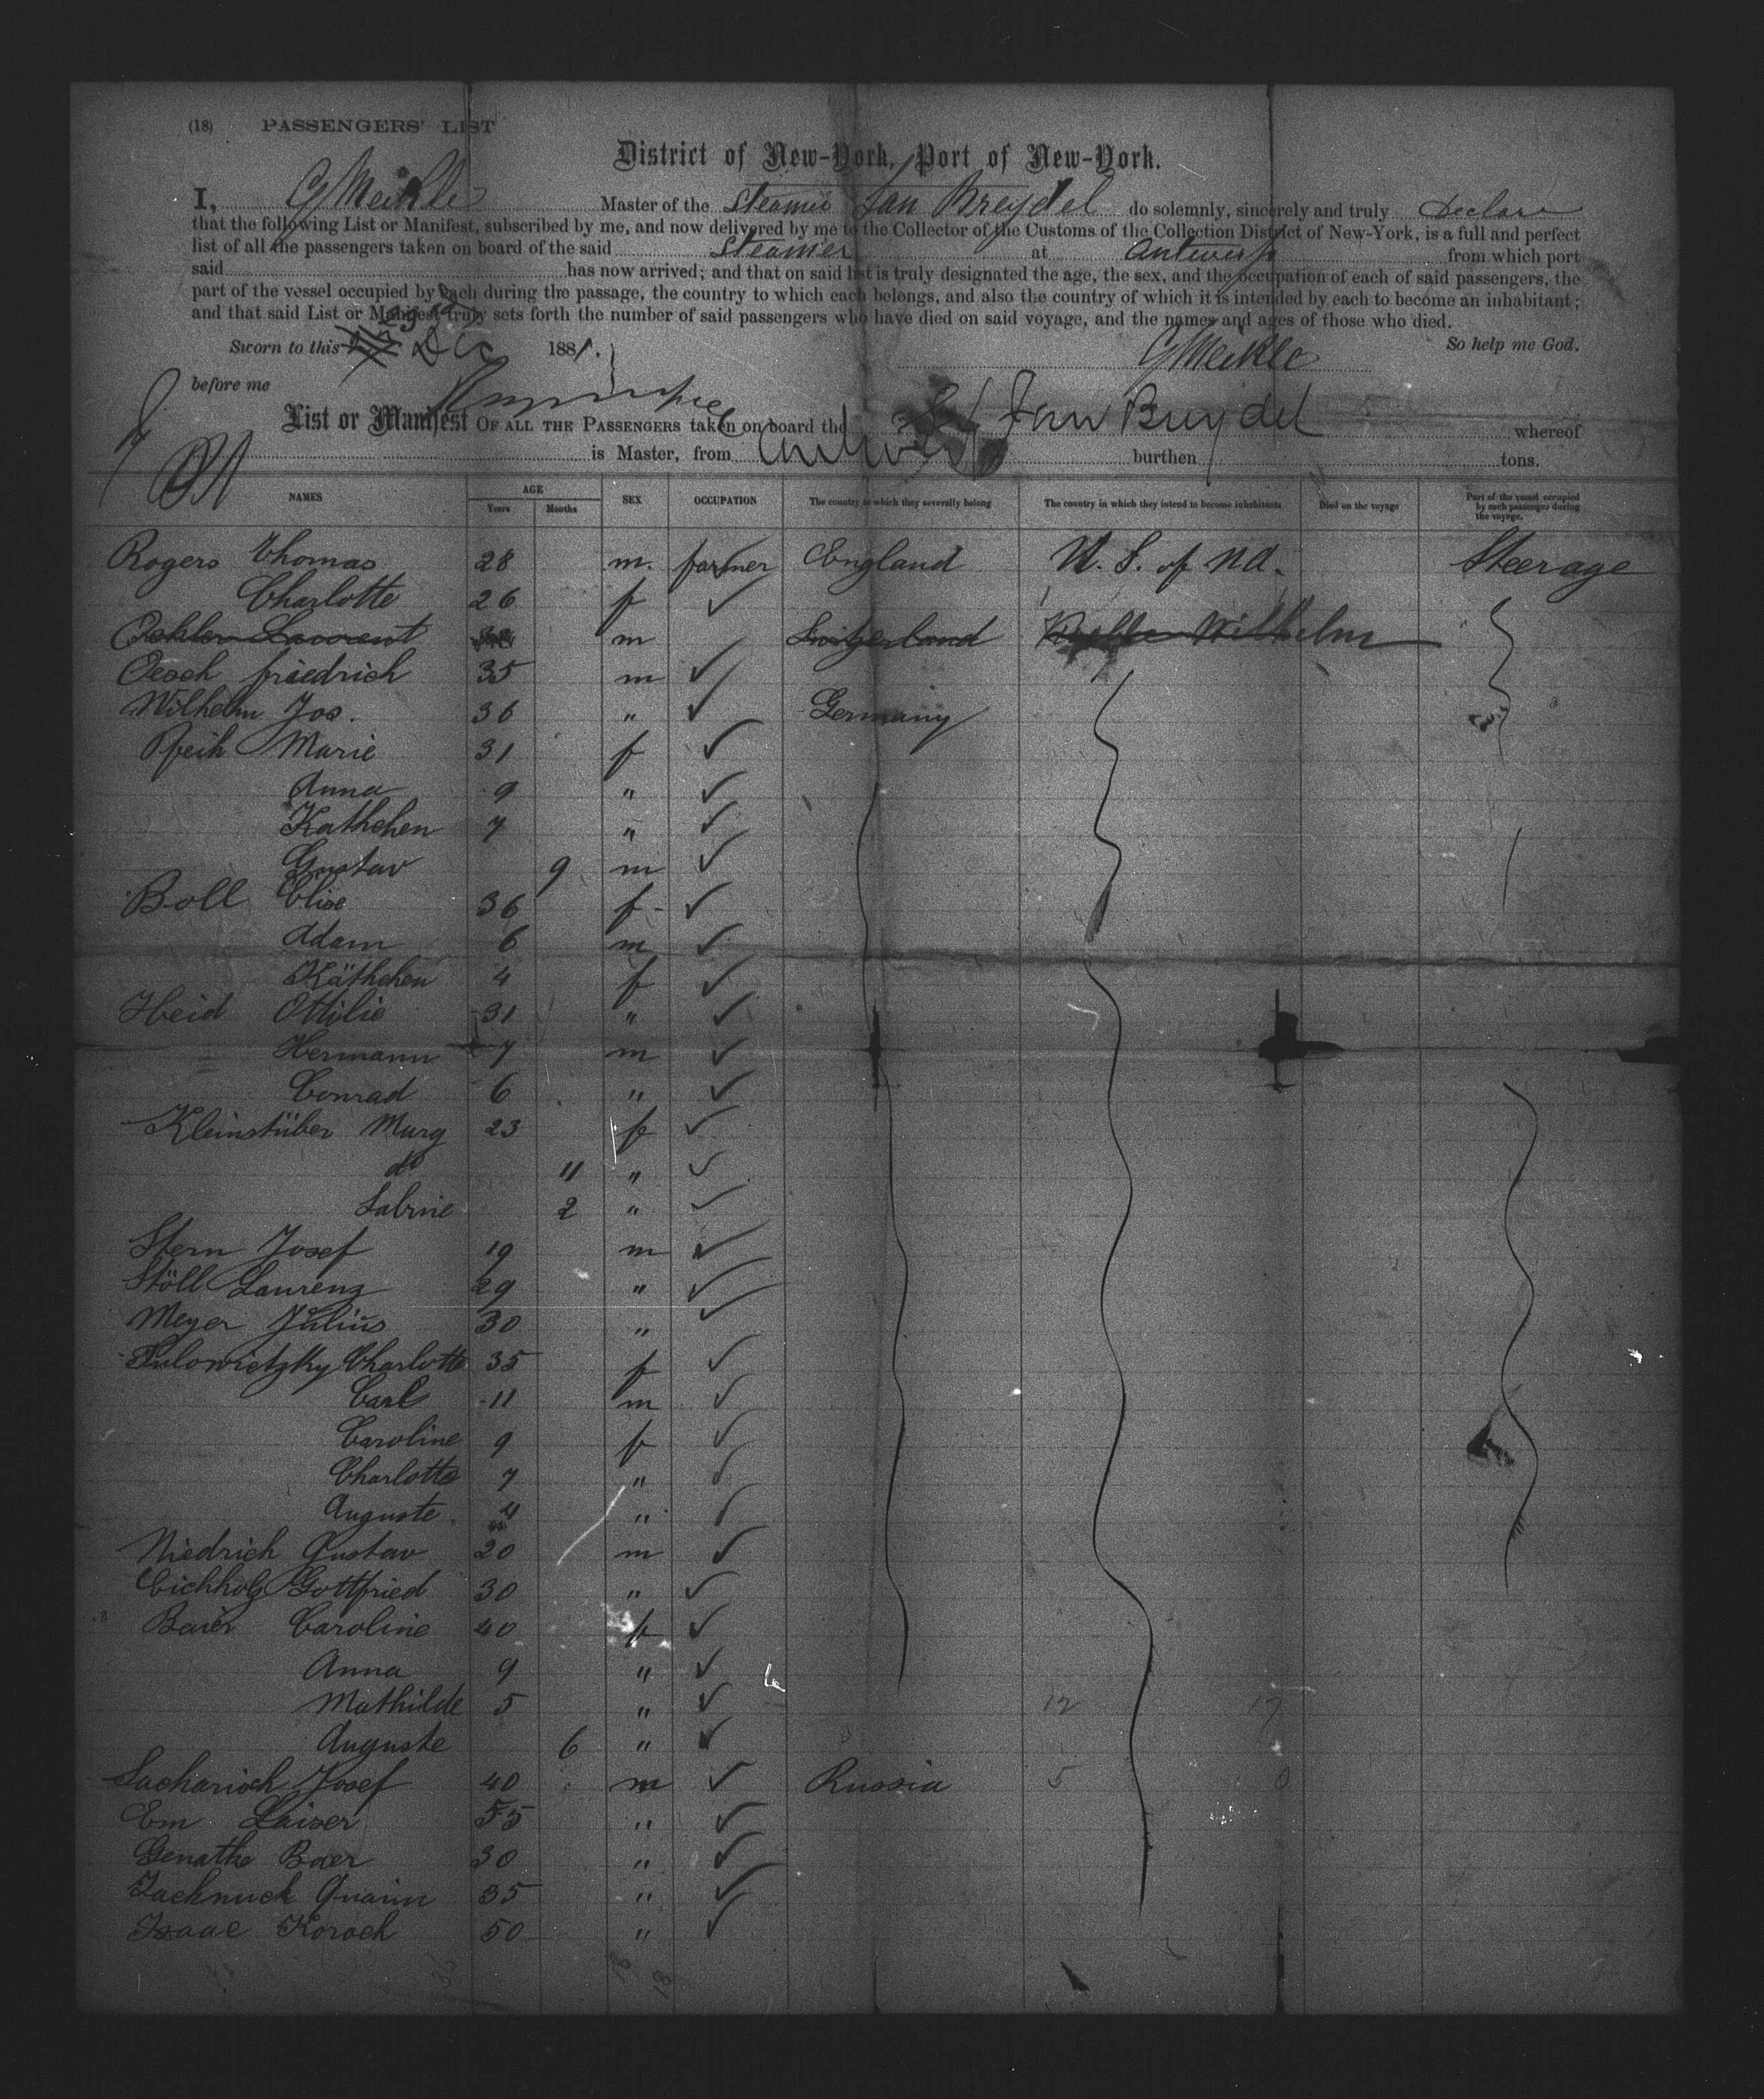 (18) PASSENGERS' LIST
District of New-York, Port of New-York.
I, G Meikle Master of the Steamer Jan Breydel do solemnly, sincerely and truly Declare
that the following List or Manifest, subscribed by me, and now delivered by me to the Collector of the Customs of the Collection District of New-York, is a full and perfect
list of all the passengers taken on board of the said Steamer at Antwerp from which port
said has now arrived; and that on said list is truly designated the age, the sex, and the occupation of each of said passengers, the
part of the vessel occupied by each during the passage, the country to which each belongs, and also the country of which it is intended by each to become an inhabitant;
and that said List or Manifest truly sets forth the number of said passengers who have died on said voyage, and the names and ages of those who died.
Sworn to this 23 Dec 1881. G Meikle So help me God.
before me
List or Manifest OF ALL THE PASSENGERS taken on board the Jan Breydel whereof
is Master, from Antwerp burthen tons.
NAMES AGE Years Months SEX OCCUPATION The country to which they severally belong The country in which they intend to become inhabitants Died on the voyage Part of the vessel occupied by each passenger during the voyage.
Rogers Thomas 28 m. farmer England U. S. of Na. Steerage
Charlotte 26 f
Laurent m Switzerland Wilhelm
Oesch friedrich 35 m
Wilhelm Jos. 36 " Germany
Pfeih Marie 31 f
Anna 9 "
Kathchen 7 "
Gustav 9 m
Boll Elise 36 f
Adam 6 m
Käthchen 4 f
Heid Ottilie 31 "
Hermann 7 m
Conrad 6 "
Kleinstüber Marg 23 f
do 11 "
Sabine 2 "
Stern Josef 19 m
Stöll Laurenz 29 "
Meyer Julius 30 "
Pulowietzky Charlotte 35 f
Carl 11 m
Caroline 9 f
Charlotte 7 "
Auguste 4 "
Niedrich Gustav 20 m
Eichholz Gottfried 30 "
Baier Caroline 40 f
Anna 9 "
Mathilde 5 " 12 17
Auguste 6 "
Sacharioh Josef 40 m Russia 5 0
Em Laiser 55 "
Genathe Baer 30 "
Jachnuck Quaim 35 "
Isaac Koroch 50 "